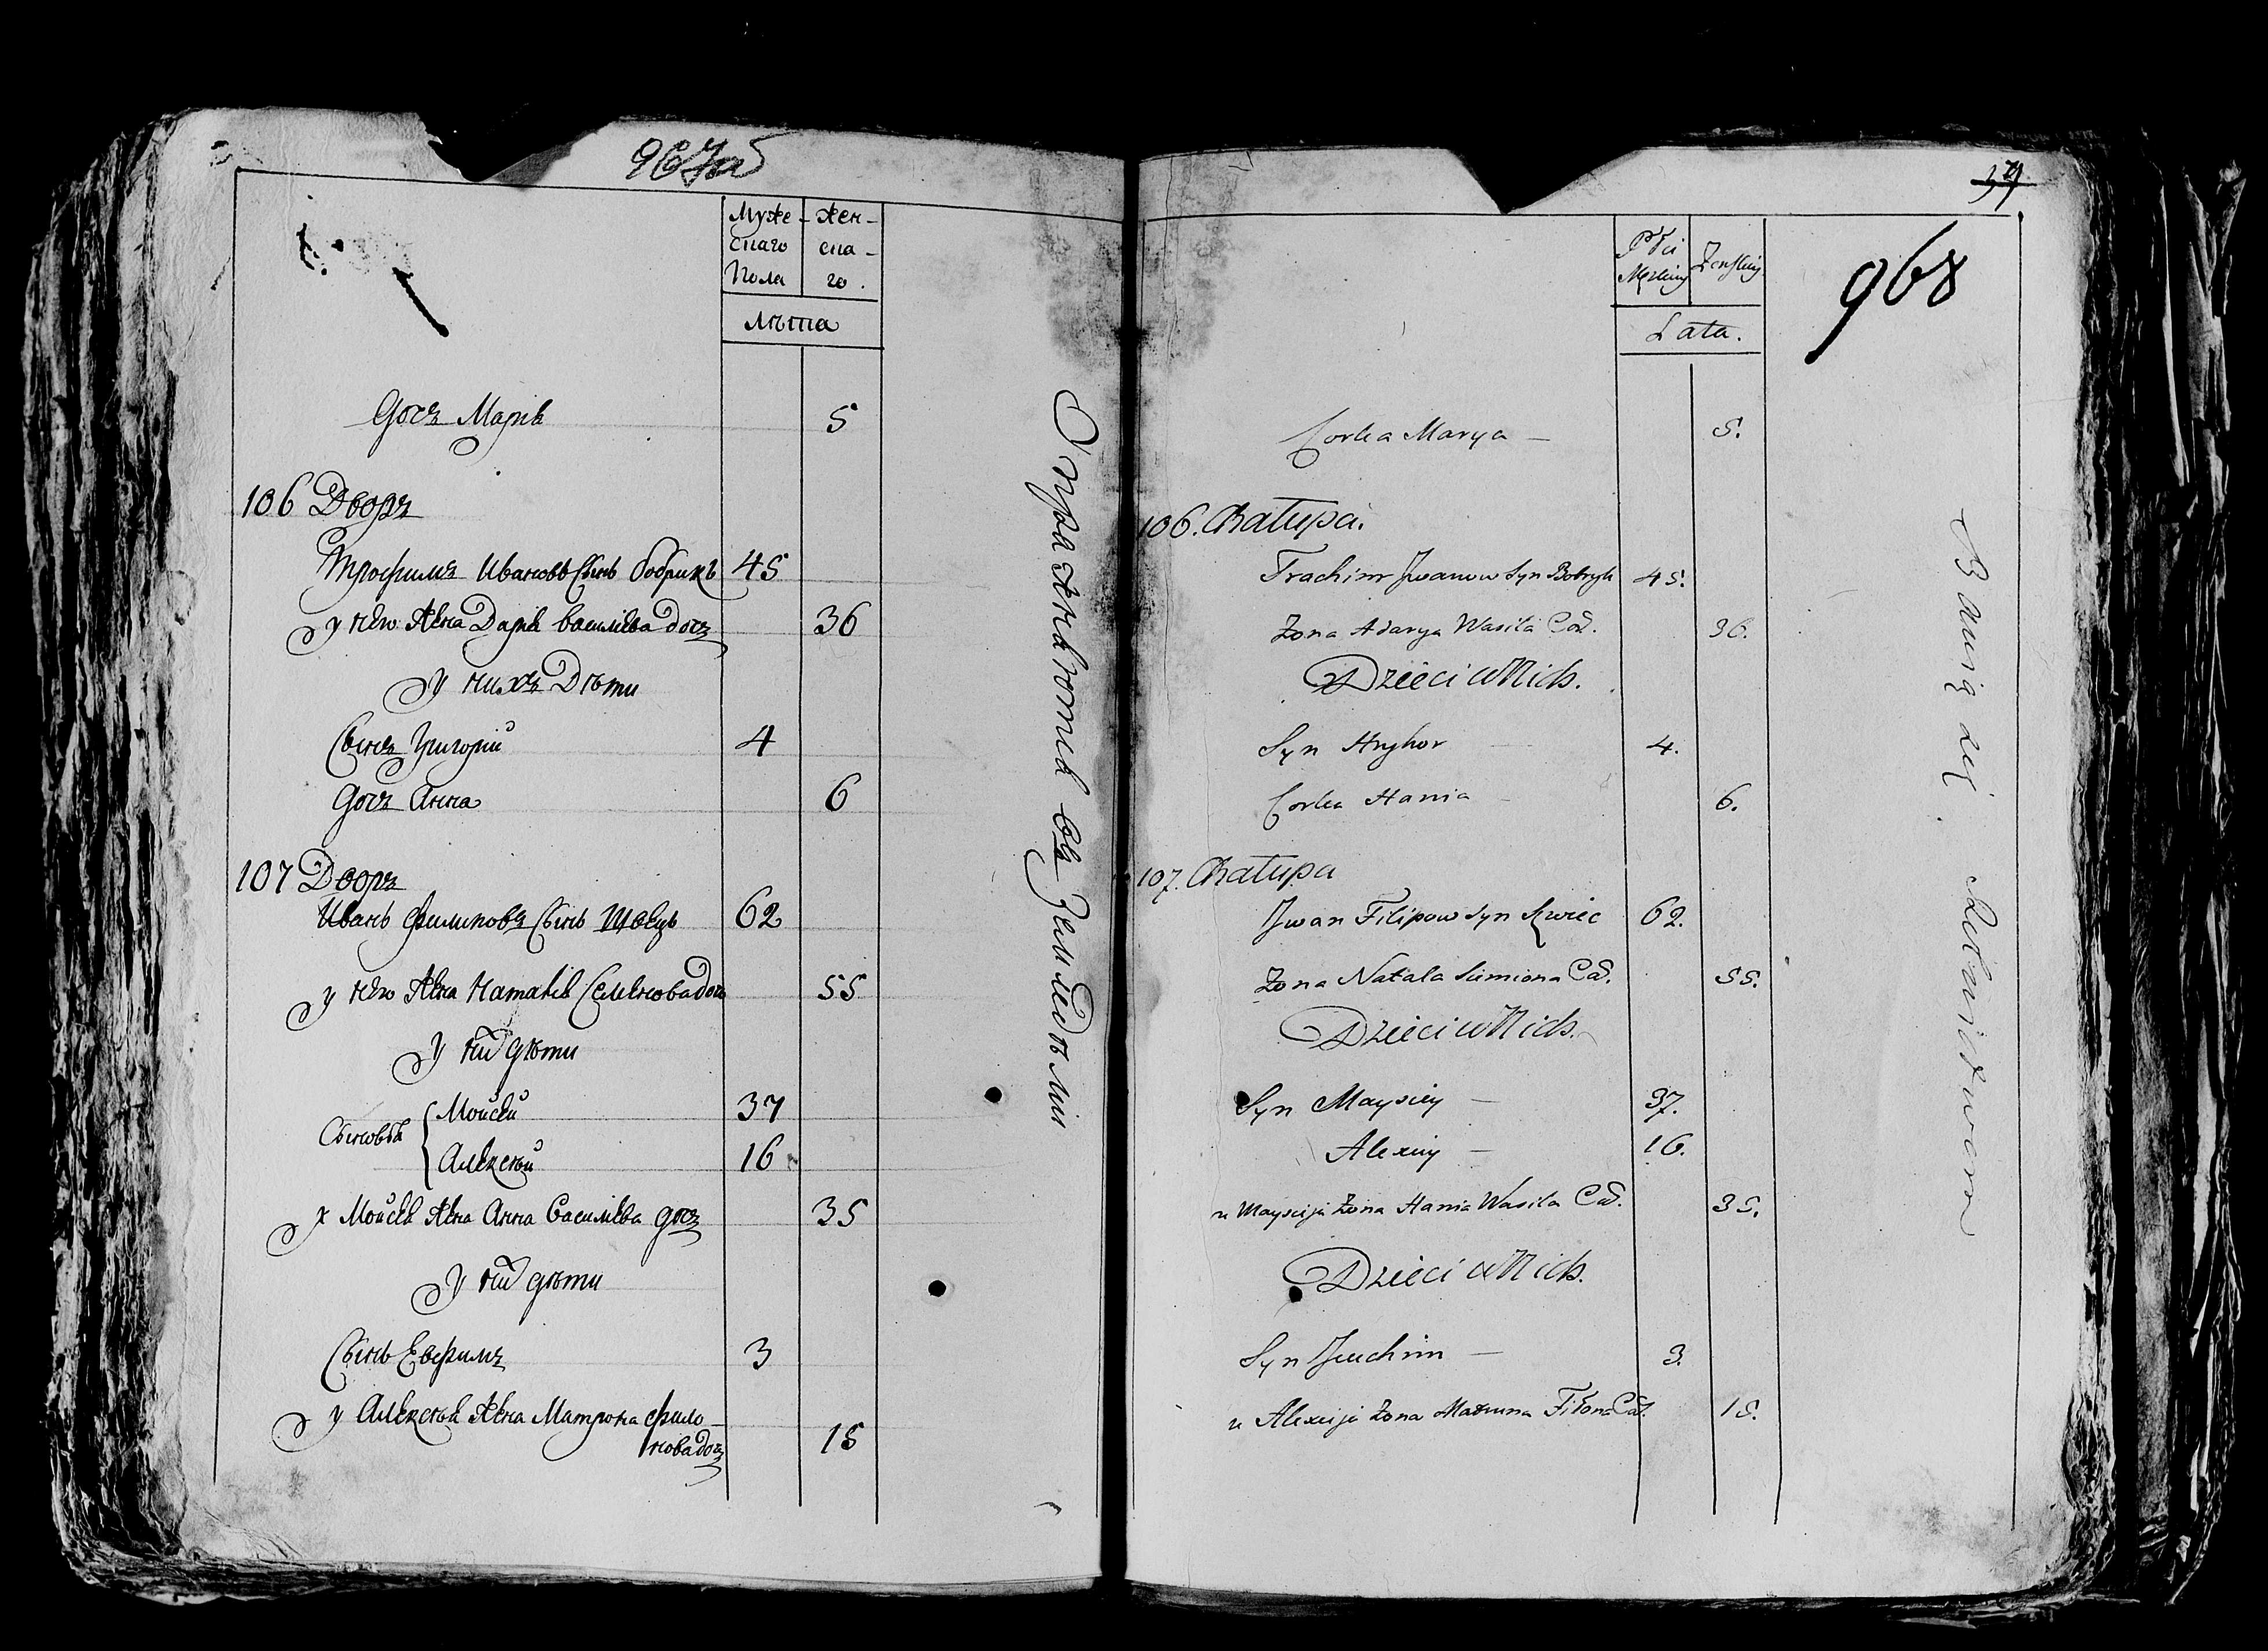 967об
Муже- жен-
скаго ска-
Пола го.
лѣта
Дочь Марія 5
106 Дворъ
Трофимъ Ивановъ Сынъ бобрикъ 45
у него Жена Дарія василіева дочь 36
У нихъ Дѣти
Сынъ Григорій 4
Дочь Анна 6
107 Дворъ
Иванъ Филиповъ Сынъ Швецъ 62
у него Жена Наталія Семенова дочь 55
У ни дѣти
Сыновья Мойсей 37
Алексѣй 16
у Мойсея Жена Анна Василіева дочь 35
У ни дѣти
Сынъ Евфимъ 3
у Алексѣя Жена Матрона Фило-
нова дочь 15
968
Płci
Męzkiey Zenskiey
Lata.
Corka Marya 5.
106. Chałupa.
Trachim Jwanow Syn Bobryk 45.
Zona Adarya Wasila Cod. 36.
Dzieci u Nich.
Syn Hryhor 4.
Corka Hania 6.
107. Chałupa
Jwan Filipow Syn Szwiec 62.
Zona Natala Siemiona Cod. 55.
Dzieci u Nich.
Syn Maysiey 37.
Alexiey 16.
u Maysieja Zona Hania Wasila Cod. 35.
Dzieci u Nich.
Syn Juchim 3.
u Alexieja Zona Matruna Filona Cod. 15.